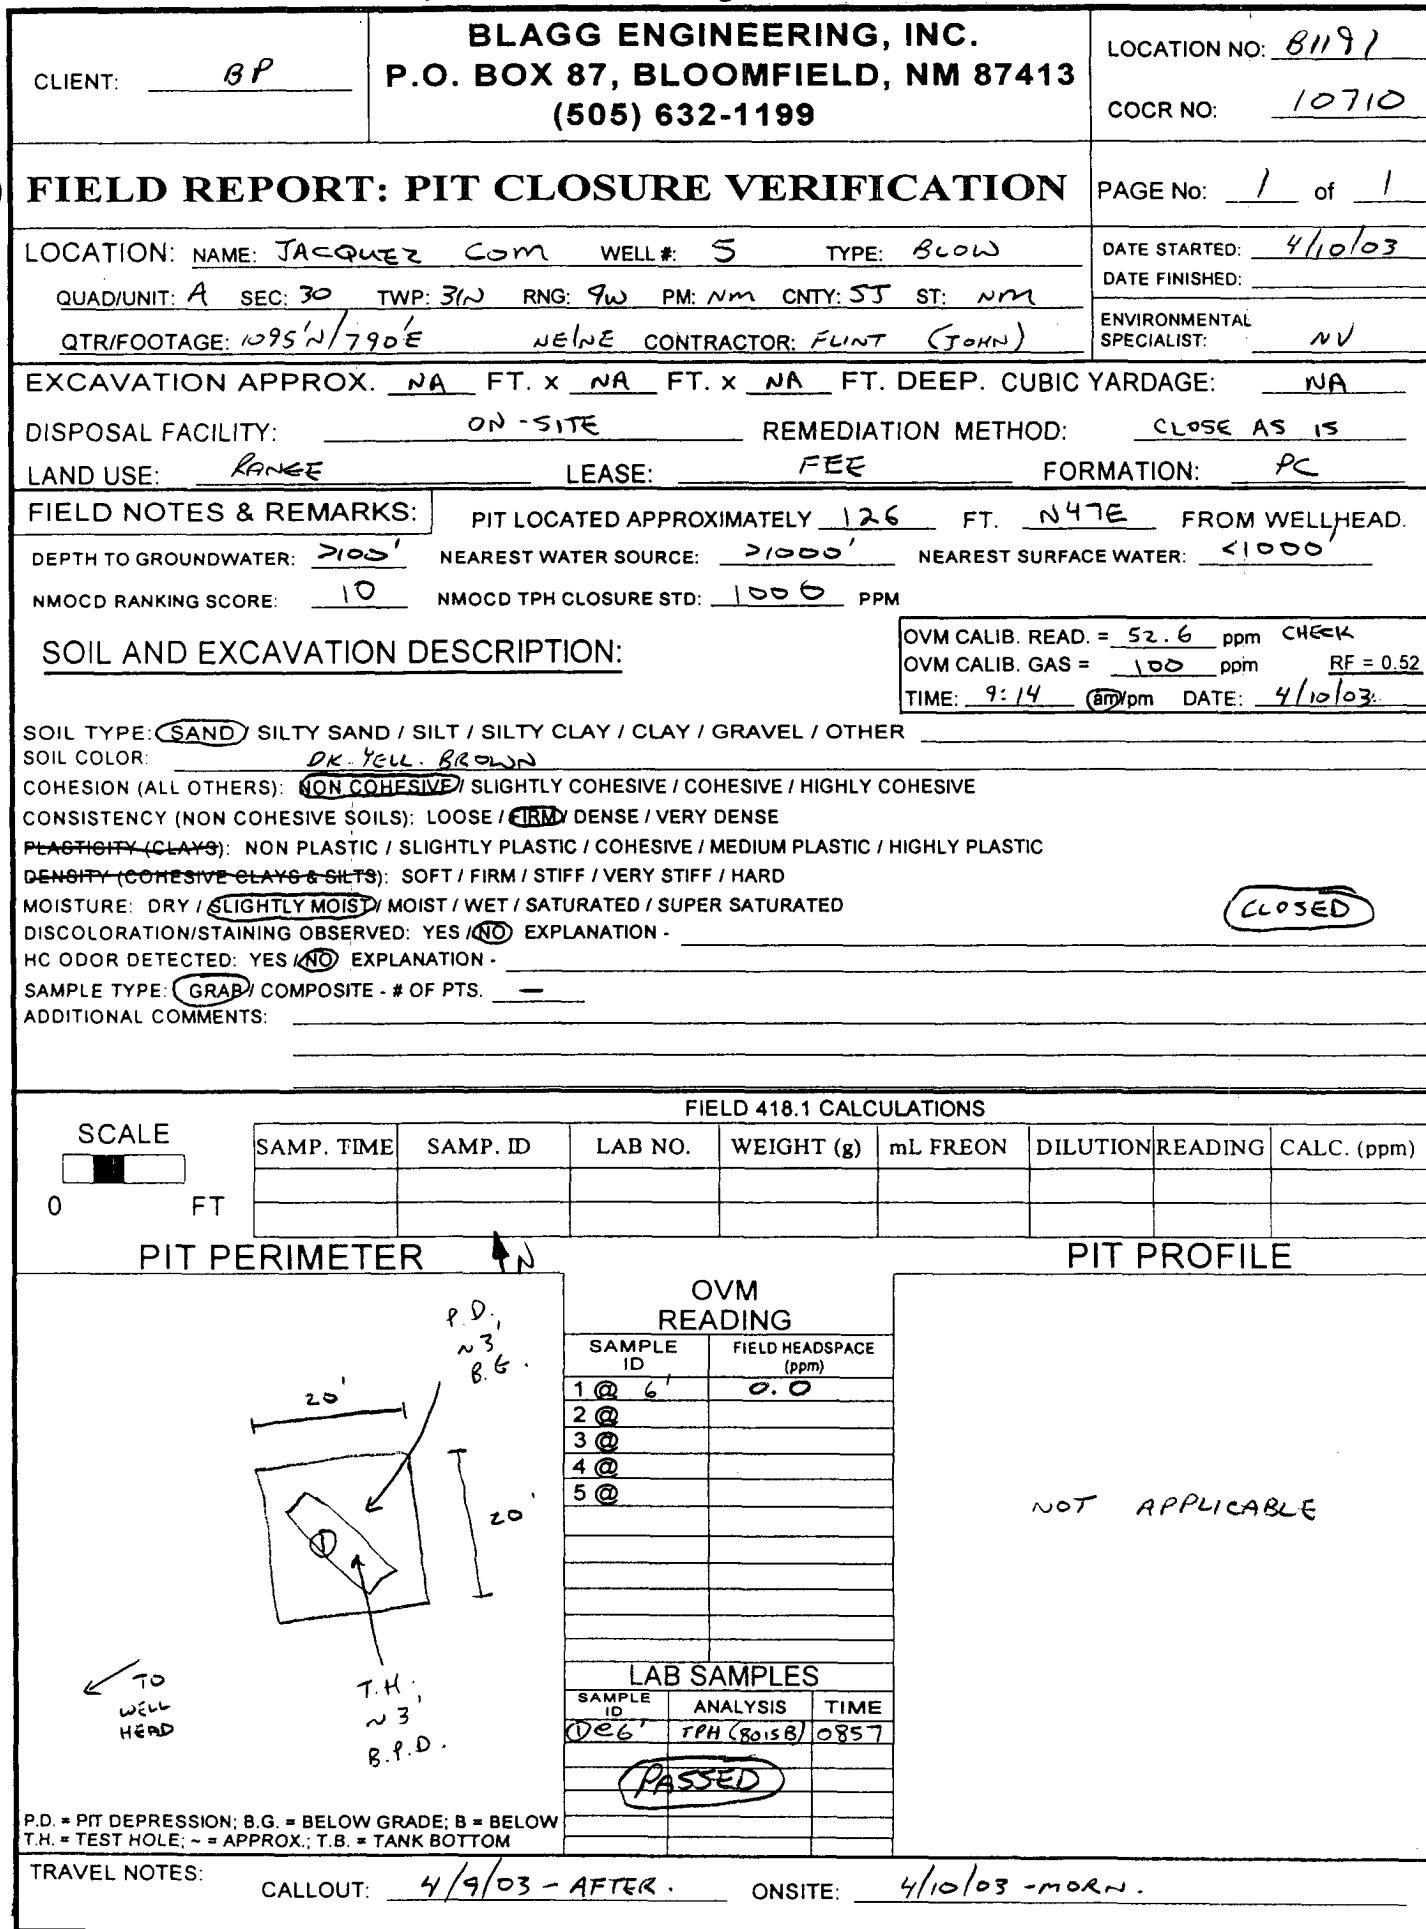 BLAGG ENGINEERING, INC.
P.O. BOX 87, BLOOMFIELD, NM 87413
(505) 632-1199
CLIENT: BP
LOCATION NO: B1191
COCR NO: 10710
FIELD REPORT: PIT CLOSURE VERIFICATION
PAGE No: 1 of 1
LOCATION: NAME: JACQUEZ COM WELL #: 5 TYPE: BLOW
QUAD/UNIT: A SEC: 30 TWP: 31N RNG: 9W PM: NM CNTY: SJ ST: NM
QTR/FOOTAGE: 1095'N/790'E NE/NE CONTRACTOR: FLINT (JOHN)
DATE STARTED: 4/10/03
DATE FINISHED:
ENVIRONMENTAL
SPECIALIST: NV
EXCAVATION APPROX. NA FT. x NA FT. x NA FT. DEEP. CUBIC YARDAGE: NA
DISPOSAL FACILITY: ON-SITE REMEDIATION METHOD: CLOSE AS IS
LAND USE: RANGE LEASE: FEE FORMATION: PC
FIELD NOTES & REMARKS: PIT LOCATED APPROXIMATELY 126 FT. N47E FROM WELLHEAD.
DEPTH TO GROUNDWATER: >100' NEAREST WATER SOURCE: >1000' NEAREST SURFACE WATER: <1000'
NMOCD RANKING SCORE: 10 NMOCD TPH CLOSURE STD: 1000 PPM
SOIL AND EXCAVATION DESCRIPTION:
OVM CALIB. READ. = 52.6 ppm CHECK
OVM CALIB. GAS = 100 ppm RF = 0.52
TIME: 9:14 am/pm DATE: 4/10/03
SOIL TYPE: SAND / SILTY SAND / SILT / SILTY CLAY / CLAY / GRAVEL / OTHER
SOIL COLOR: DK. YELL. BROWN
COHESION (ALL OTHERS): NON COHESIVE / SLIGHTLY COHESIVE / COHESIVE / HIGHLY COHESIVE
CONSISTENCY (NON COHESIVE SOILS): LOOSE / FIRM / DENSE / VERY DENSE
PLASTICITY (CLAYS): NON PLASTIC / SLIGHTLY PLASTIC / COHESIVE / MEDIUM PLASTIC / HIGHLY PLASTIC
DENSITY (COHESIVE CLAYS & SILTS): SOFT / FIRM / STIFF / VERY STIFF / HARD
MOISTURE: DRY / SLIGHTLY MOIST / MOIST / WET / SATURATED / SUPER SATURATED
CLOSED
DISCOLORATION/STAINING OBSERVED: YES / NO EXPLANATION -
HC ODOR DETECTED: YES / NO EXPLANATION -
SAMPLE TYPE: GRAB / COMPOSITE - # OF PTS. —
ADDITIONAL COMMENTS:
FIELD 418.1 CALCULATIONS
SCALE
0 FT
SAMP. TIME SAMP. ID LAB NO. WEIGHT (g) mL FREON DILUTION READING CALC. (ppm)
PIT PERIMETER
N
P.D.
~3'
B.G.
20'
20'
T.H.
~3'
B.P.D.
1
TO
WELL
HEAD
P.D. = PIT DEPRESSION; B.G. = BELOW GRADE; B = BELOW
T.H. = TEST HOLE; ~ = APPROX.; T.B. = TANK BOTTOM
OVM
READING
SAMPLE ID FIELD HEADSPACE (ppm)
1 @ 6' 0.0
2 @
3 @
4 @
5 @
LAB SAMPLES
SAMPLE ID ANALYSIS TIME
①@6' TPH (8015B) 0857
PASSED
PIT PROFILE
NOT APPLICABLE
TRAVEL NOTES: CALLOUT: 4/9/03 - AFTER. ONSITE: 4/10/03 - MORN.